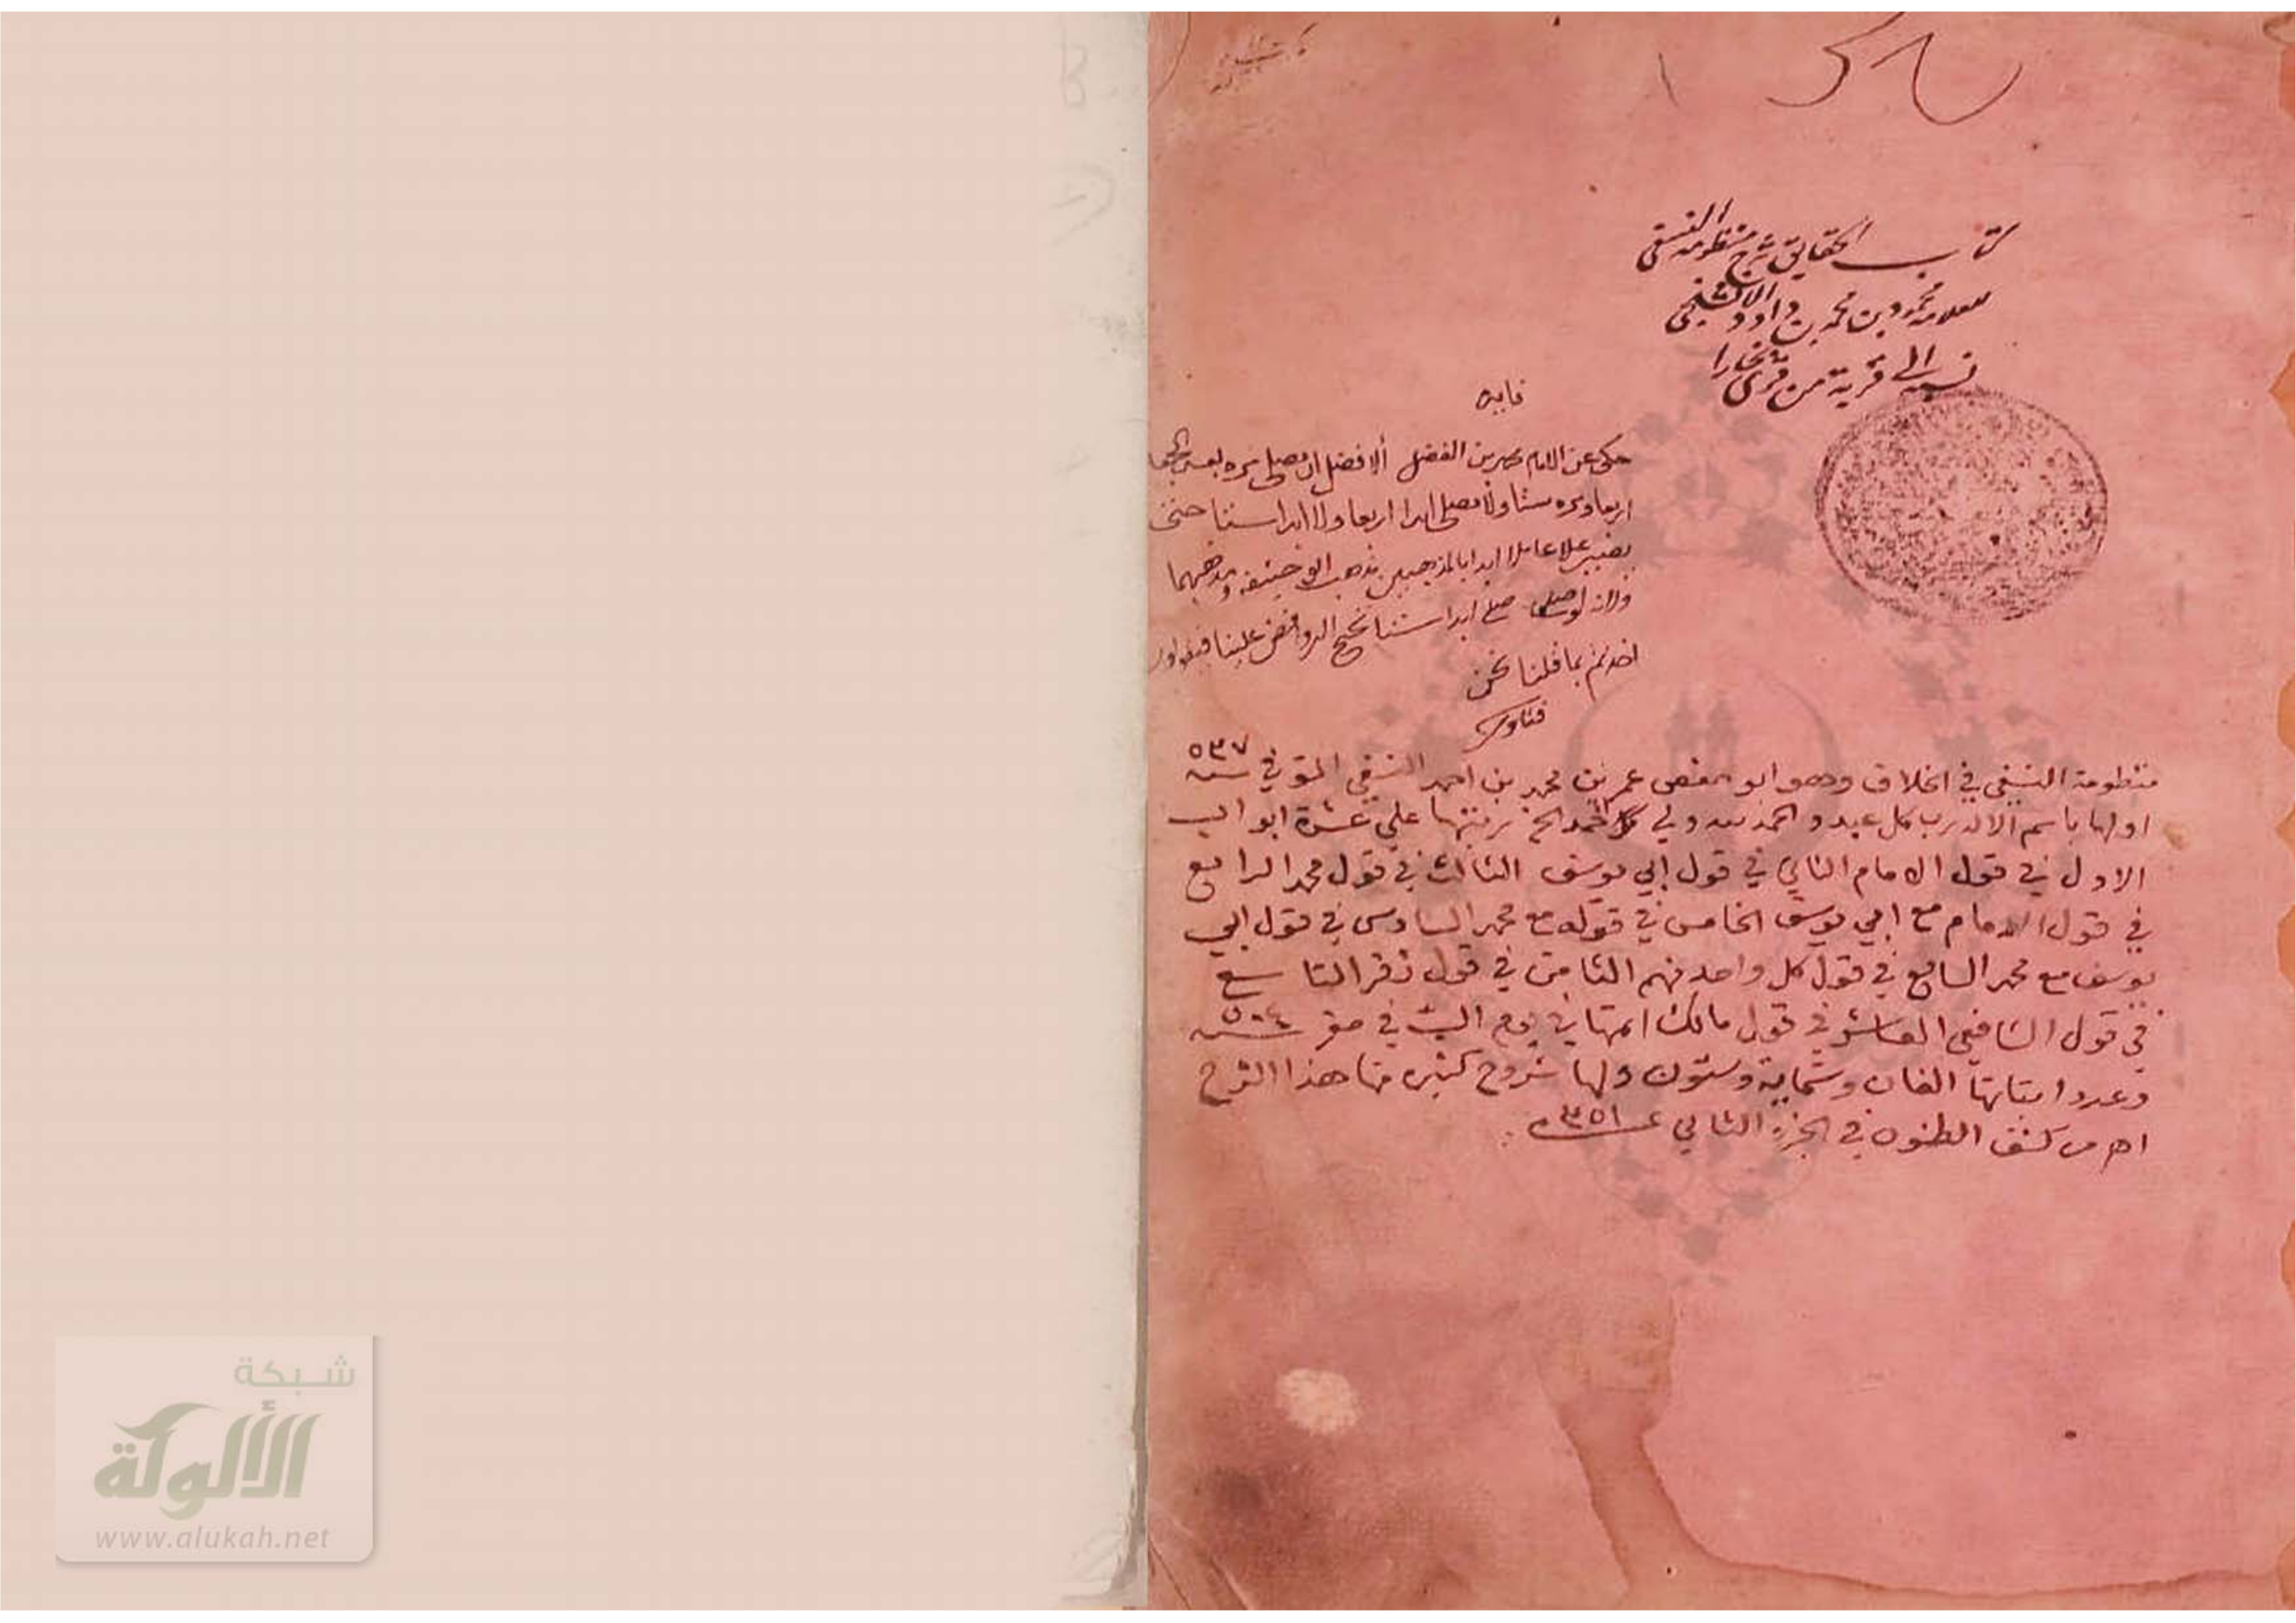 كتاب الحقايق شرح منظومة النسفي
للعلامة محمود بن محمد بن داود الافشنجي
نسبة الى قرية من قرى بخارا
فايده
حكى عن الامام محمد بن الفضل ألافضل ان يصلى مره بعد الجمعة
اربعا ومره ستا ولا يصلى ابدا اربعا ولا ابدا ستا حتى
يصير عاملا ابدا بالمذهبين مذهب ابو حنيفه ومذهبهما
ولانه لو صلى ابدا ستا تحتج الروافض علينا فيقولون
اخذتم بما قلنا نحن
فتاوى
منظومة النسفي في الخلاف وهو ابو حفص عمر بن محمد بن احمد النسفي المتوفي سنه ٥٣٧
اولها باسم الاله رب كل عبد والحمد لله ولي الحمد الخ رتبتها على عشرة ابواب
الاول في قول الامام الثاني في قول ابي يوسف الثالث في قول محمد الرابع
في قول الامام مع ابي يوسف الخامس في قوله مع محمد السادس في قول ابي
يوسف مع محمد السابع في قول كل واحد منهم الثامن في قول زفر التاسع
في قول الشافعي العاشر في قول مالك اتمها في يوم السبت في صفر سنه ٥٠٤
وعدد ابياتها الفان وستماية وستون ولها شروح كثيره منها هذا الشرح
اهـ من كشف الظنون في الجزء الثاني ٣٥١
شبكة
الألوكة
www.alukah.net